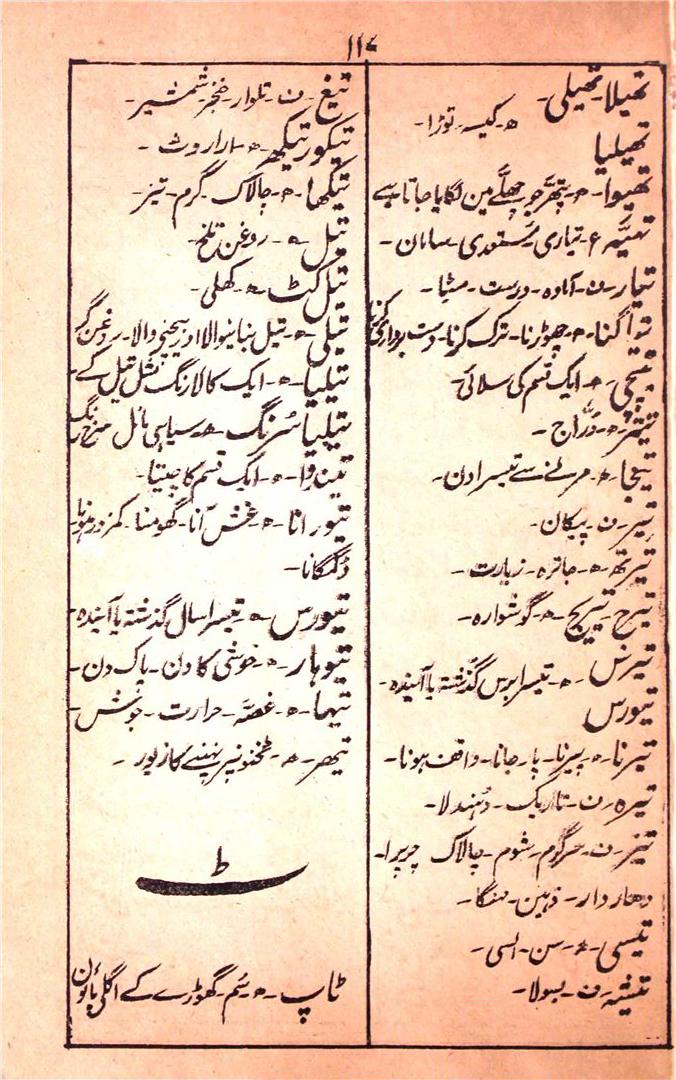 ۱۱۷
تھیلا۔ تھیلی۔
ھ۔ کیسہ۔ توڑا۔
تھیلیا
تھیوا۔ ھ۔ پتھر جو چھلّے مین لگایا جاتا ہے
تہیّہ۔ ع۔ تیاری۔ مستعدی۔ سامان۔
تیار۔ ن۔ آمادہ۔ درست۔ مہیا۔
تیاگنا۔ ھ۔ چھوڑنا۔ ترک کرنا۔ دست برداری کرنا
تیپچی۔ ھ۔ ایک قسم کی سلائی۔
تیتر۔ ھ۔ دُرّاج۔
تیجا۔ ھ۔ مرنے سے تیسرا دن۔
تیر۔ ن۔ پیکان۔
تیرتھ۔ ھ۔ جاترہ۔ زیارت۔
تیرج۔ تیریج۔ ھ۔ گوشوارہ۔
تیرس
ھ۔ تیسرا برس گذشتہ یا آیندہ۔
تیورس
تیرنا۔ ھ۔ پیرنا۔ پار جانا۔ واقف ہونا۔
تیرہ۔ ن۔ تاریک۔ دُہندلا۔
تیز۔ ن۔ سرگرم۔ شوم۔ چالاک چرپرا۔
دھاردار۔ ذہین۔ مہنگا۔
تیسی۔ ھ۔ سن۔ السی۔
تیشہ۔ ن۔ بسولا۔
تیغ۔ ن۔ تلوار۔ خنجر۔ شمشیر۔
تیکور تیکھر۔ ھ۔ اراروٹ۔
تیکھا۔ ھ۔ چالاک۔ گرم۔ تیز۔
تیل۔ ھ۔ روغن تلخ۔
تیل کٹ۔ ھ۔ کھلی۔
تیلی۔ ھ۔ تیل بنانیوالا اور بیچنے والا۔ روغن گر
تیلیا۔ ھ۔ ایک کالا رنگ مثل تیل کے۔
تیلیا سُرنگ۔ ھ۔ سیاہی مائل سرخ رنگ
تیندوا۔ ھ۔ ایک قسم کا چیتا۔
تیورانا۔ ھ۔ غش آنا۔ گھومنا۔ کمزور ہونا۔
ڈگمگانا۔
تیورس۔ ھ۔ تیسرا سال گذشتہ یا آیندہ۔
تیوہار۔ ھ۔ خوشی کا دن۔ پاک دن۔
تیہا۔ ھ۔ غصّہ۔ حرارت۔ جوش۔
تیھر۔ ھ۔ ٹخنونپر پہننے کا زیور۔
ٹ
ٹاپ۔ ھ۔ سُم۔ گھوڑے کے اگلے پاؤن